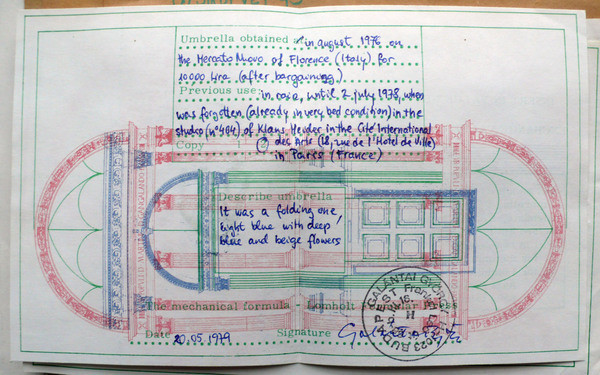 Umbrella obtained in august 1976 on
the Mercato Nuovo of Florence (Italy) for
10000 lira (after bargaining)
Previous use: in rain, until 2 july 1978, when
was forgotten (already in very bad condition) in the
studio (n° 404) of Klaus Heuder in the Cité International
des arts (18, rue de l'Hotel de Ville)
Copy in Paris (France)
Describe umbrella
It was a folding one,
light blue with deep
blue and beige flowers
The mechanical formula - Lomholt Press
Date 20.05.1979 Signature
GALANTAI GYÖRGY
BUDAPEST